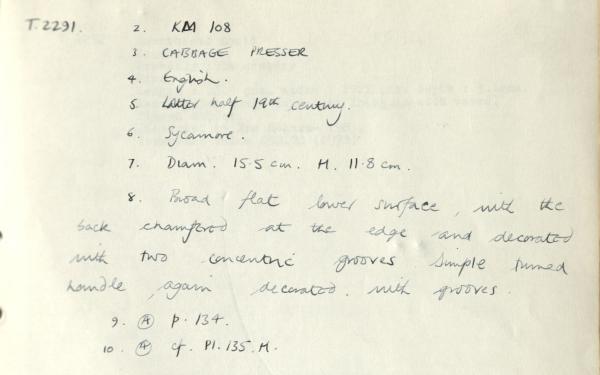 T.2291. 2. KM 108
3. CABBAGE PRESSER
4. English.
5 Latter half 19th century.
6. Sycamore.
7. Diam. 15.5 cm. H. 11.8 cm.
8. Broad flat lower surface, with the
back chamfered at the edge and decorated
with two concentric grooves Simple turned
handle, again decorated with grooves.
9. A p. 134.
10. A cf. Pl. 135. H.